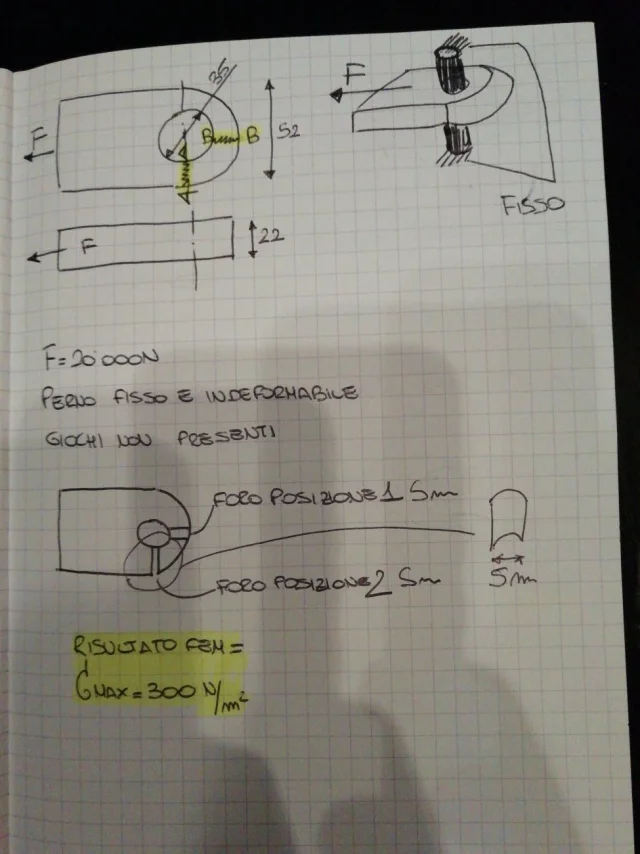 35
F
F
52
B B
FISSO
F
22
F=20'000N
PERNO FISSO E INDEFORMABILE
GIOCHI NON PRESENTI
FORO POSIZIONE 1 5m
FORO POSIZIONE 2 5m
5m
RISULTATO FEM =
σMAX = 300 N/m²